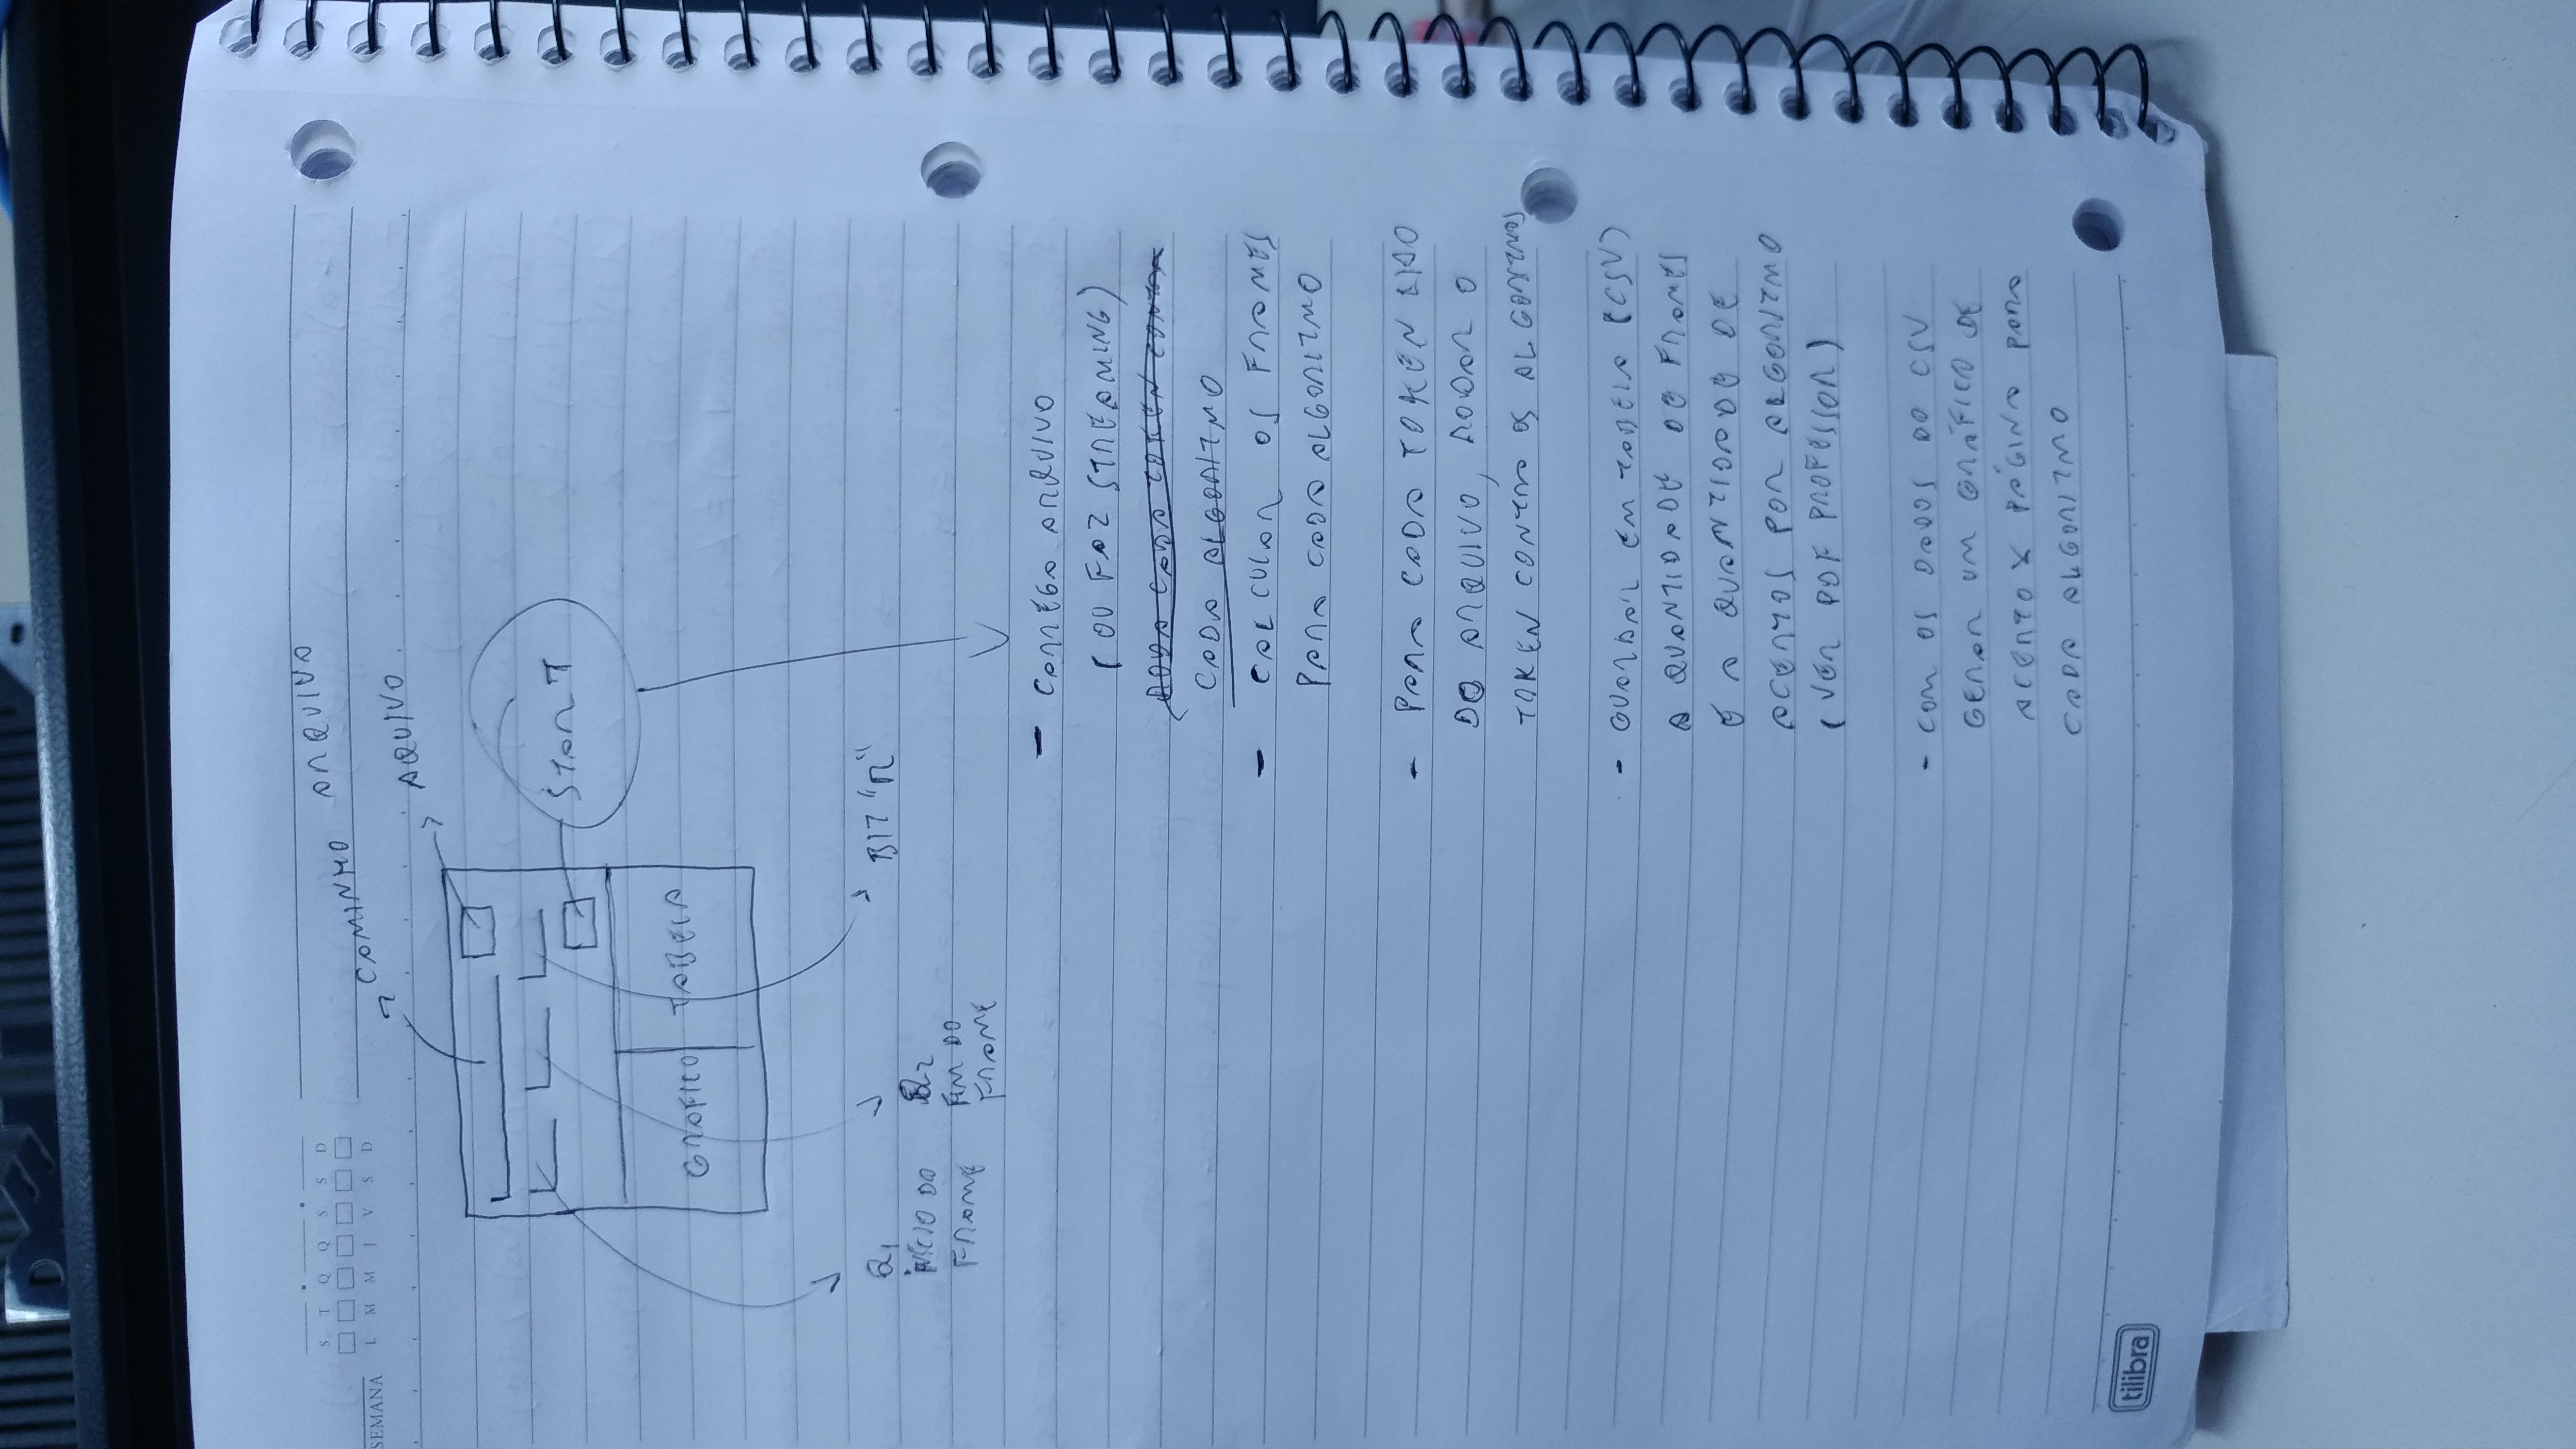 DELL
S T Q Q S S D
SEMANA
L M M J V S D
CAMINHO ARQUIVO
AQUIVO
START
GRAFICO TABELA
Q1
INICIO DO
FRAME
Q2
FIM DO
FRAME
BIT "R"
- CARREGA ARQUIVO
(OU FAZ STREAMING)
RODA CADA TOKEN CONTRA
CADA ALGORITMO
- CALCULAR OS FRAMES
PARA CADA ALGORITMO
- PARA CADA TOKEN LIDO
DO ARQUIVO, RODAR O
TOKEN CONTRA OS ALGORITMOS
- GUARDAR EM TABELA (CSV)
A QUANTIDADE DE FRAMES
E A QUANTIDADE DE
ACERTOS POR ALGORITMO
(VER PDF PROFESSOR)
- COM OS DADOS DO CSV
GERAR UM GRÁFICO DE
ACERTO X PÁGINA PARA
CADA ALGORITMO
tilibra